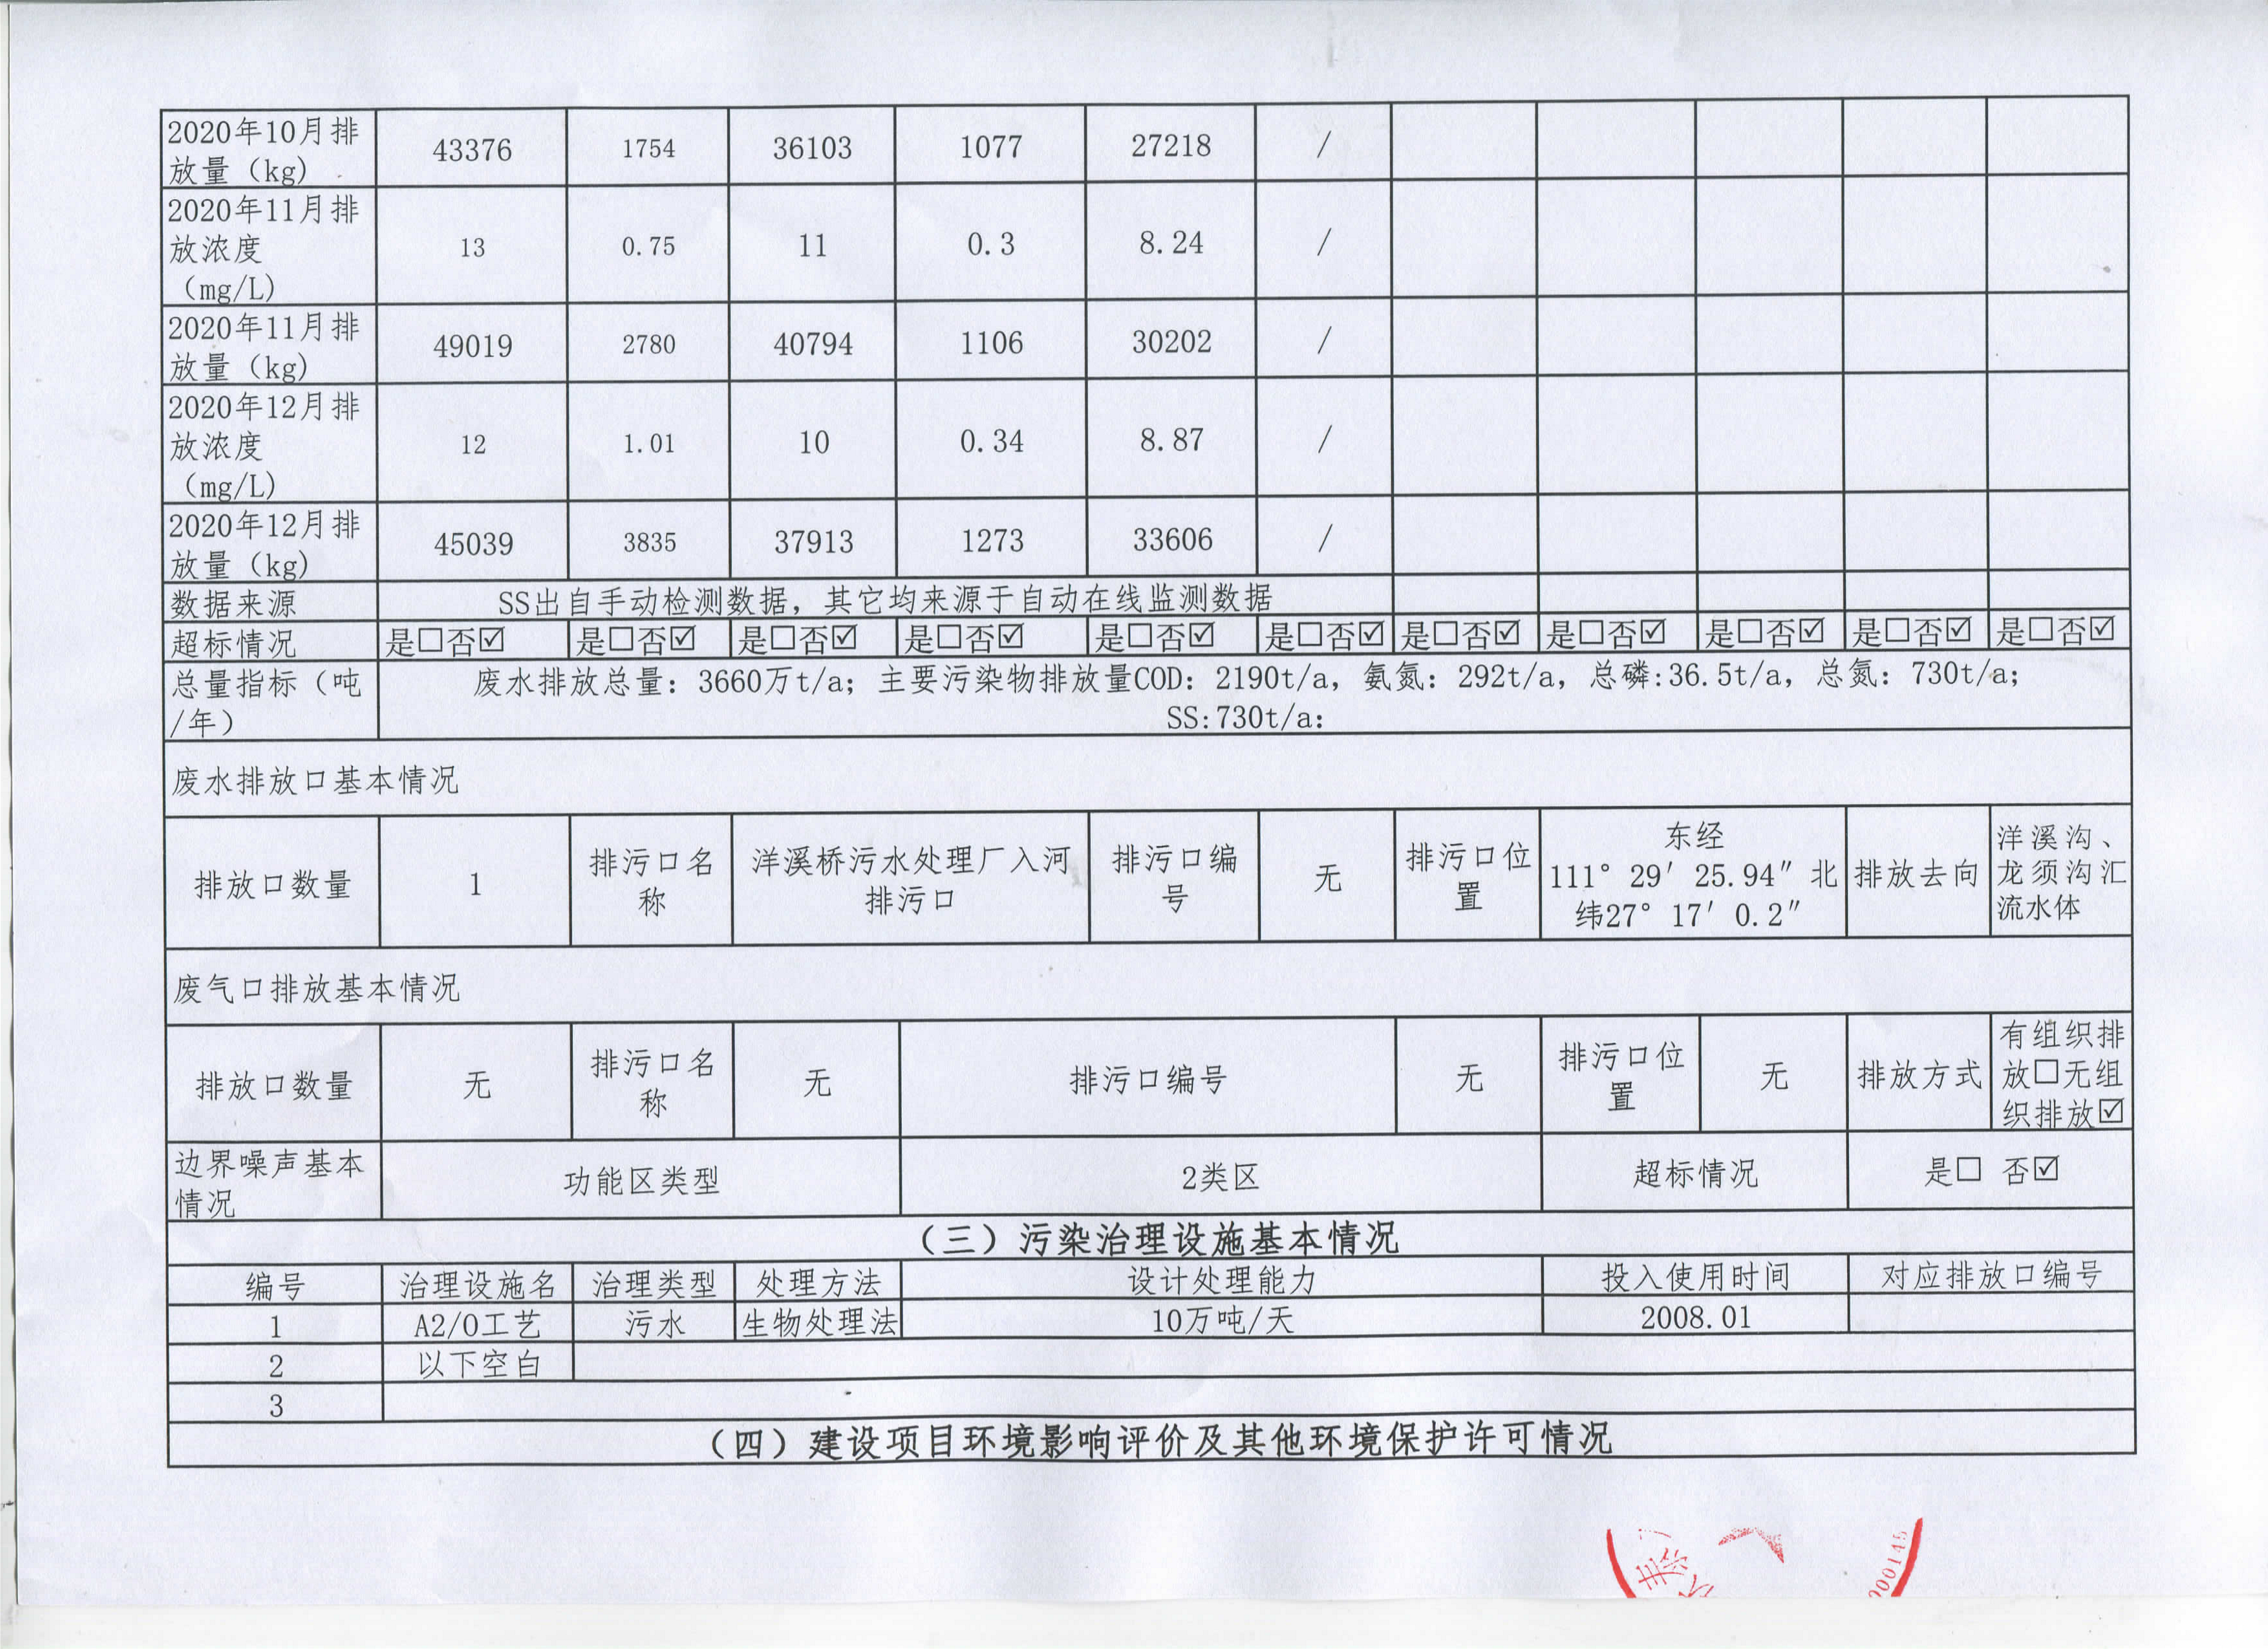 2020年10月排
放量（kg)
43376
1754
36103
1077
27218
/
2020年11月排
放浓度
（mg/L)
13
0.75
11
0.3
8.24
/
2020年11月排
放量（kg)
49019
2780
40794
1106
30202
/
2020年12月排
放浓度
（mg/L)
12
1.01
10
0.34
8.87
/
2020年12月排
放量（kg)
45039
3835
37913
1273
33606
/
数据来源
SS出自手动检测数据，其它均来源于自动在线监测数据
超标情况
是☐否☑
是☐否☑
是☐否☑
是☐否☑
是☐否☑
是☐否☑
是☐否☑
是☐否☑
是☐否☑
是☐否☑
是☐否☑
总量指标（吨
/年）
废水排放总量：3660万t/a；主要污染物排放量COD：2190t/a，氨氮：292t/a，总磷:36.5t/a，总氮：730t/a；
SS:730t/a：
废水排放口基本情况
排放口数量
1
排污口名
称
洋溪桥污水处理厂入河
排污口
排污口编
号
无
排污口位
置
东经
111°29′25.94″北
纬27°17′0.2″
排放去向
洋溪沟、
龙须沟汇
流水体
废气口排放基本情况
排放口数量
无
排污口名
称
无
排污口编号
无
排污口位
置
无
排放方式
有组织排
放☐无组
织排放☑
边界噪声基本
情况
功能区类型
2类区
超标情况
是☐ 否☑
（三）污染治理设施基本情况
编号
治理设施名
治理类型
处理方法
设计处理能力
投入使用时间
对应排放口编号
1
A2/O工艺
污水
生物处理法
10万吨/天
2008.01
2
以下空白
3
（四）建设项目环境影响评价及其他环境保护许可情况